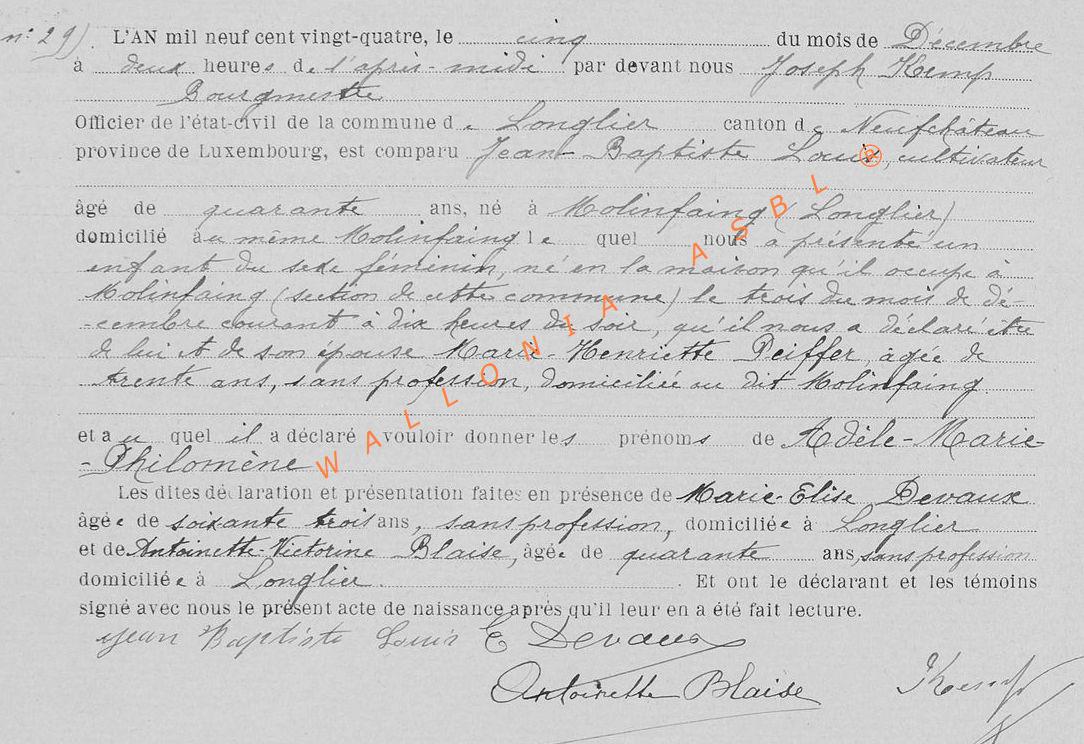 n° 29) L'AN mil neuf cent vingt-quatre, le cinq du mois de Décembre
à deux heures de l'après-midi par devant nous Joseph Kemp
Bourgmestre
Officier de l'état-civil de la commune de Longlier canton de Neufchâteau
province de Luxembourg, est comparu Jean-Baptiste Louis, cultivateur
âgé de quarante ans, né à Molinfaing (Longlier)
domicilié au même Molinfaing le quel nous a présenté un
enfant du sexe féminin, né en la maison qu'il occupe à
Molinfaing (section de cette commune) le trois du mois de dé-
-cembre courant à dix heures du soir, qu'il nous a déclaré être
de lui et de son épouse Marie-Henriette Peiffer, âgée de
trente ans, sans profession, domiciliée au dit Molinfaing
et au quel il a déclaré vouloir donner les prénoms de Adèle-Marie-
-Philomène
Les dites déclaration et présentation faites en présence de Marie-Elise Devaux
âgée de soixante trois ans, sans profession, domiciliée à Longlier
et de Antoinette-Victorine Blaise, âgée de quarante ans, sans profession
domiciliée à Longlier. Et ont le déclarant et les témoins
signé avec nous le présent acte de naissance après qu'il leur en a été fait lecture.
Jean Baptiste Louis E Devaux
Antoinette Blaise JKemp
WALLONIA ASBL ®